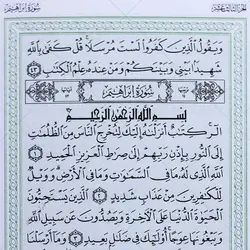 سورة إبراهيم الجزء الثالث عشر
وَيَقُولُ الَّذِينَ كَفَرُوا لَسْتَ مُرْسَلًا قُلْ كَفَىٰ بِاللَّهِ
شَهِيدًا بَيْنِي وَبَيْنَكُمْ وَمَنْ عِندَهُ عِلْمُ الْكِتَابِ ٤٣
سورة إبراهيم
بِسْمِ اللَّهِ الرَّحْمَٰنِ الرَّحِيمِ
الر كِتَابٌ أَنزَلْنَاهُ إِلَيْكَ لِتُخْرِجَ النَّاسَ مِنَ الظُّلُمَاتِ
إِلَى النُّورِ بِإِذْنِ رَبِّهِمْ إِلَىٰ صِرَاطِ الْعَزِيزِ الْحَمِيدِ ١
اللَّهِ الَّذِي لَهُ مَا فِي السَّمَاوَاتِ وَمَا فِي الْأَرْضِ وَوَيْلٌ
لِّلْكَافِرِينَ مِنْ عَذَابٍ شَدِيدٍ ٢ الَّذِينَ يَسْتَحِبُّونَ
الْحَيَاةَ الدُّنْيَا عَلَى الْآخِرَةِ وَيَصُدُّونَ عَن سَبِيلِ اللَّهِ
وَيَبْغُونَهَا عِوَجًا أُولَٰئِكَ فِي ضَلَالٍ بَعِيدٍ ٣ وَمَا أَرْسَلْنَا